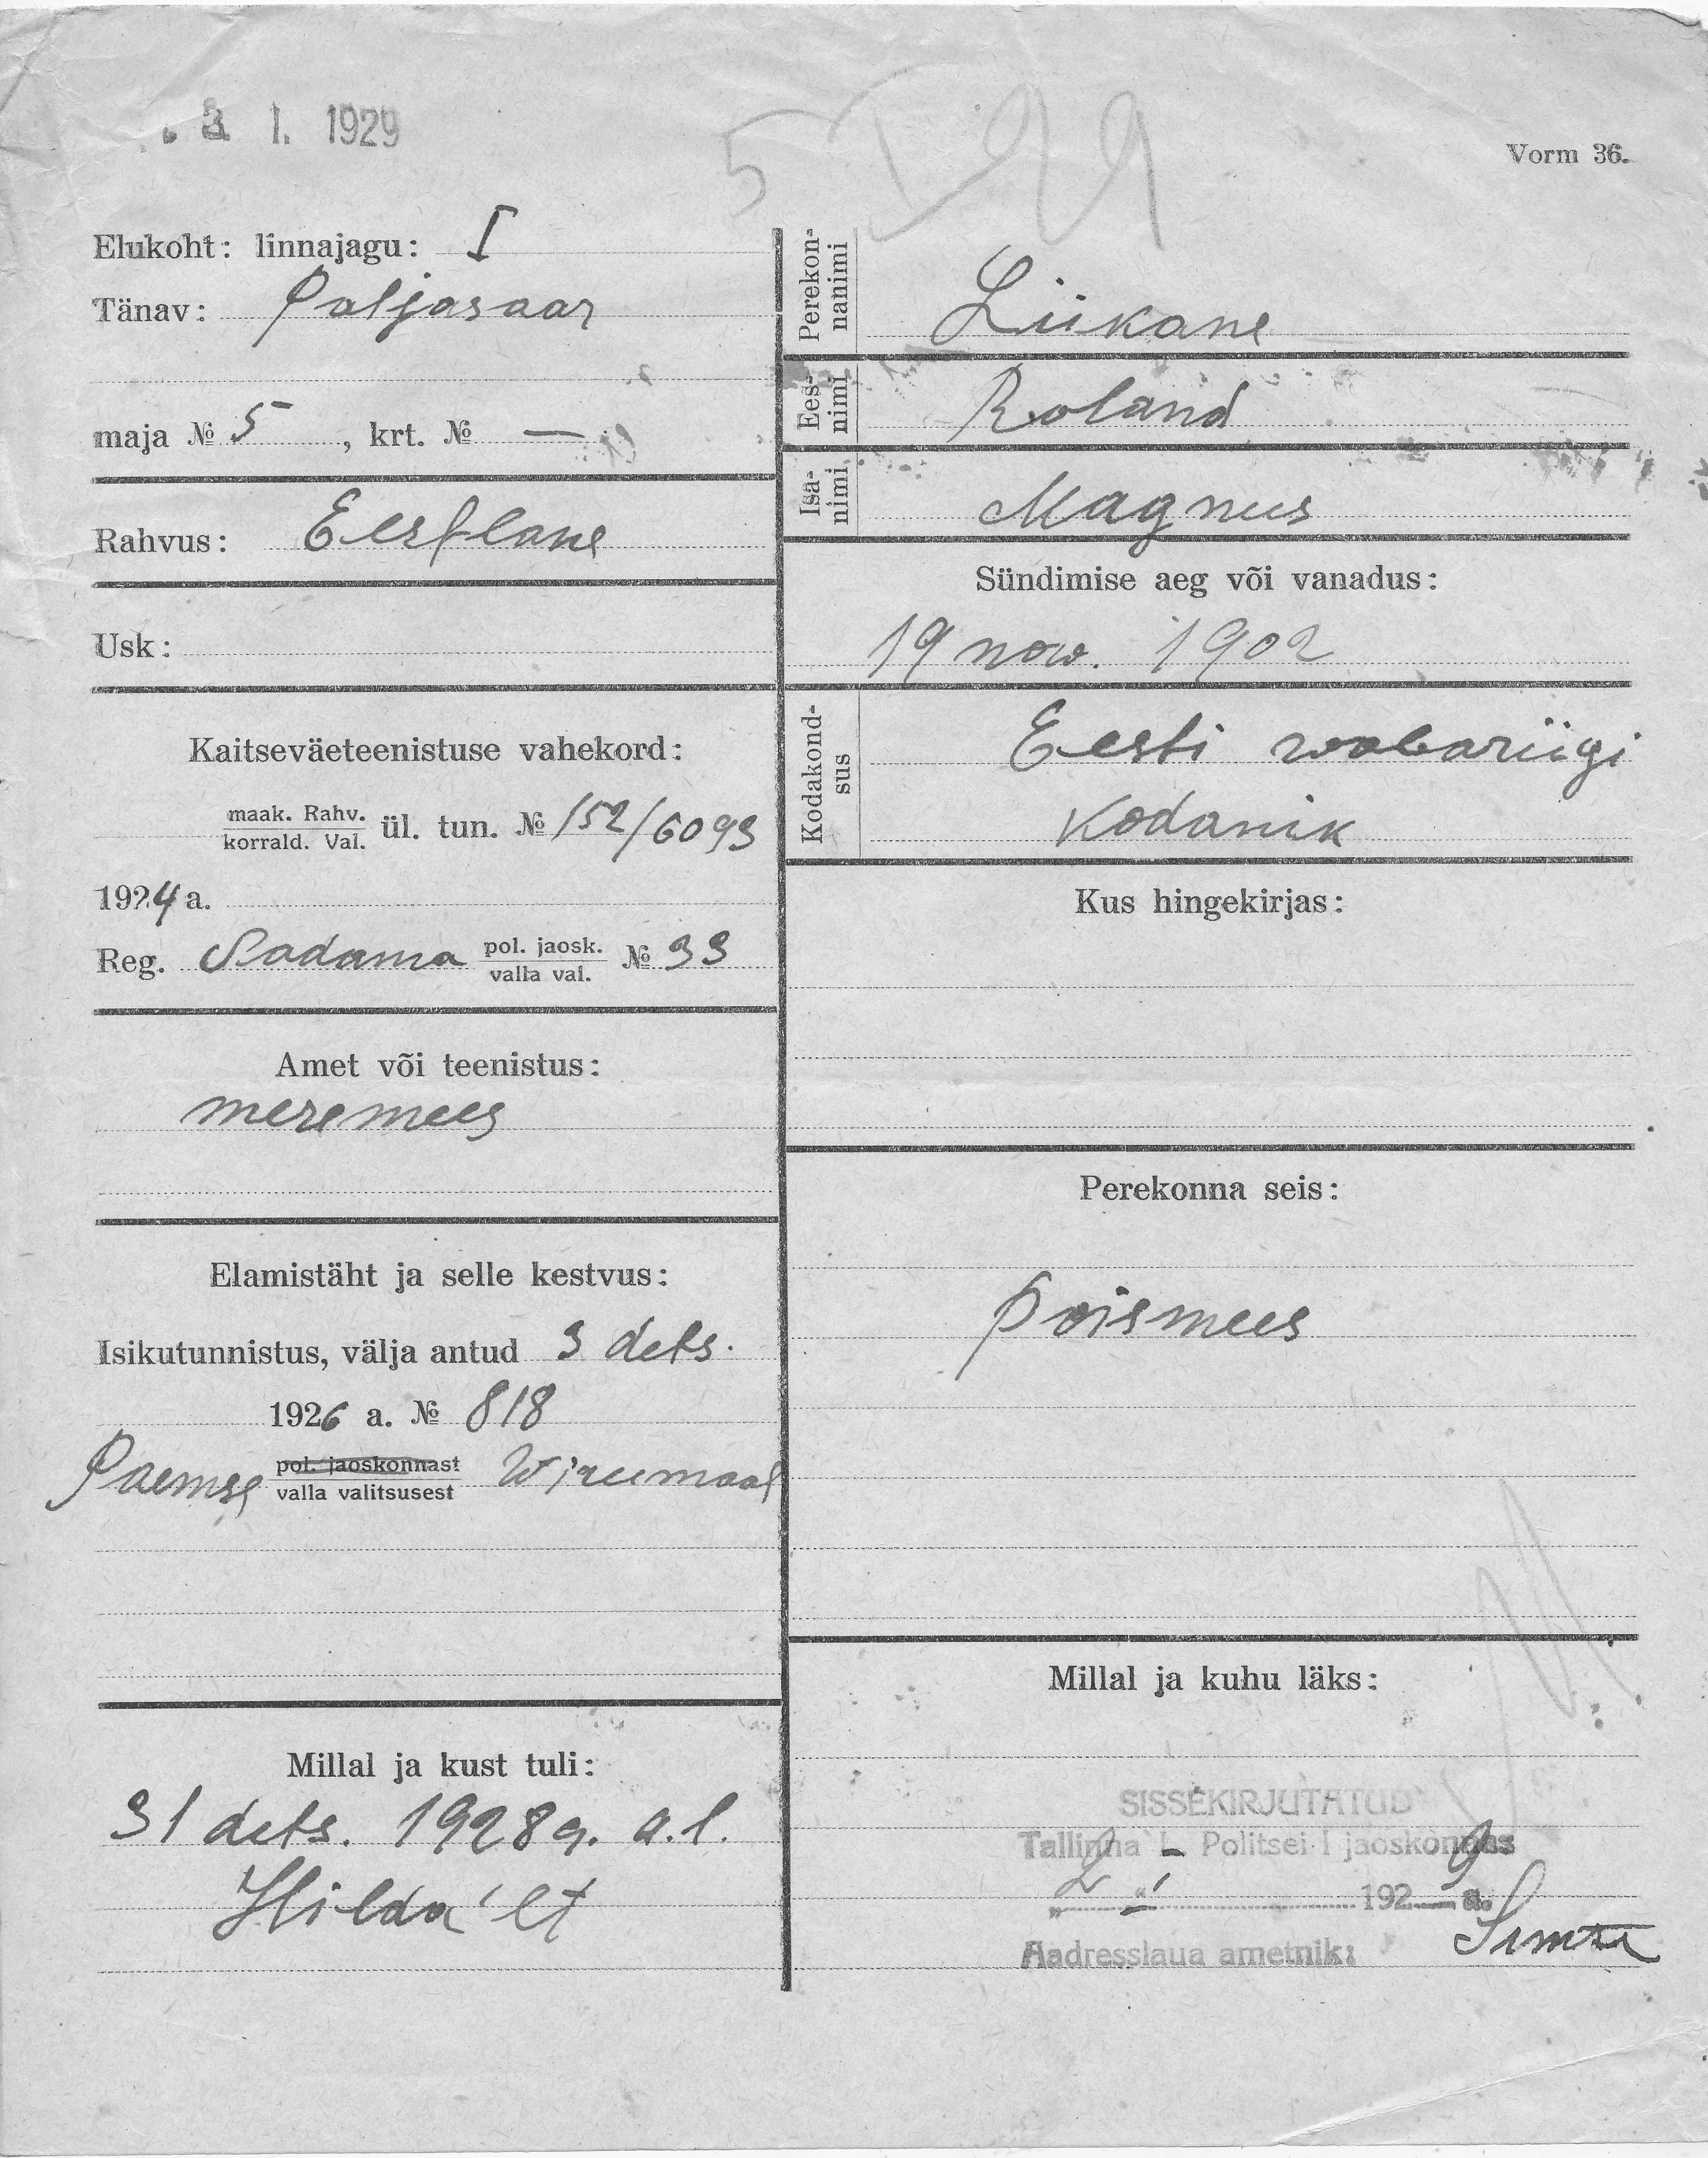 3. I. 1929
5 I 29
Vorm 36.
Elukoht: linnajagu: I
Tänav: Paljasaar
maja № 5, krt. № —
Rahvus: Eestlane
Usk:
Kaitseväeteenistuse vahekord:
maak. Rahv.
korrald. Val. ül. tun. № 152/6093
1924 a.
Reg. Sadama pol. jaosk.
valla val. № 33
Amet või teenistus:
meremees
Elamistäht ja selle kestvus:
Isikutunnistus, välja antud 3 dets.
1926 a. № 818
pol. jaoskonnast
valla valitsusest Wirumaal
Millal ja kust tuli:
31 dets. 1928 a. a.l.
Hilda'lt
Perekon-
nanimi
Liikane
Ees-
nimi
Roland
Isa-
nimi
Magnus
Sündimise aeg või vanadus:
19 now. 1902
Kodakond-
sus
Eesti wabariigi
Kodanik
Kus hingekirjas:
Perekonna seis:
poismees
Millal ja kuhu läks:
SISSEKIRJUTATUD
Tallinna L. Politsei I jaoskonnas
„2“ I 1929 a.
Aadresslaua ametnik: